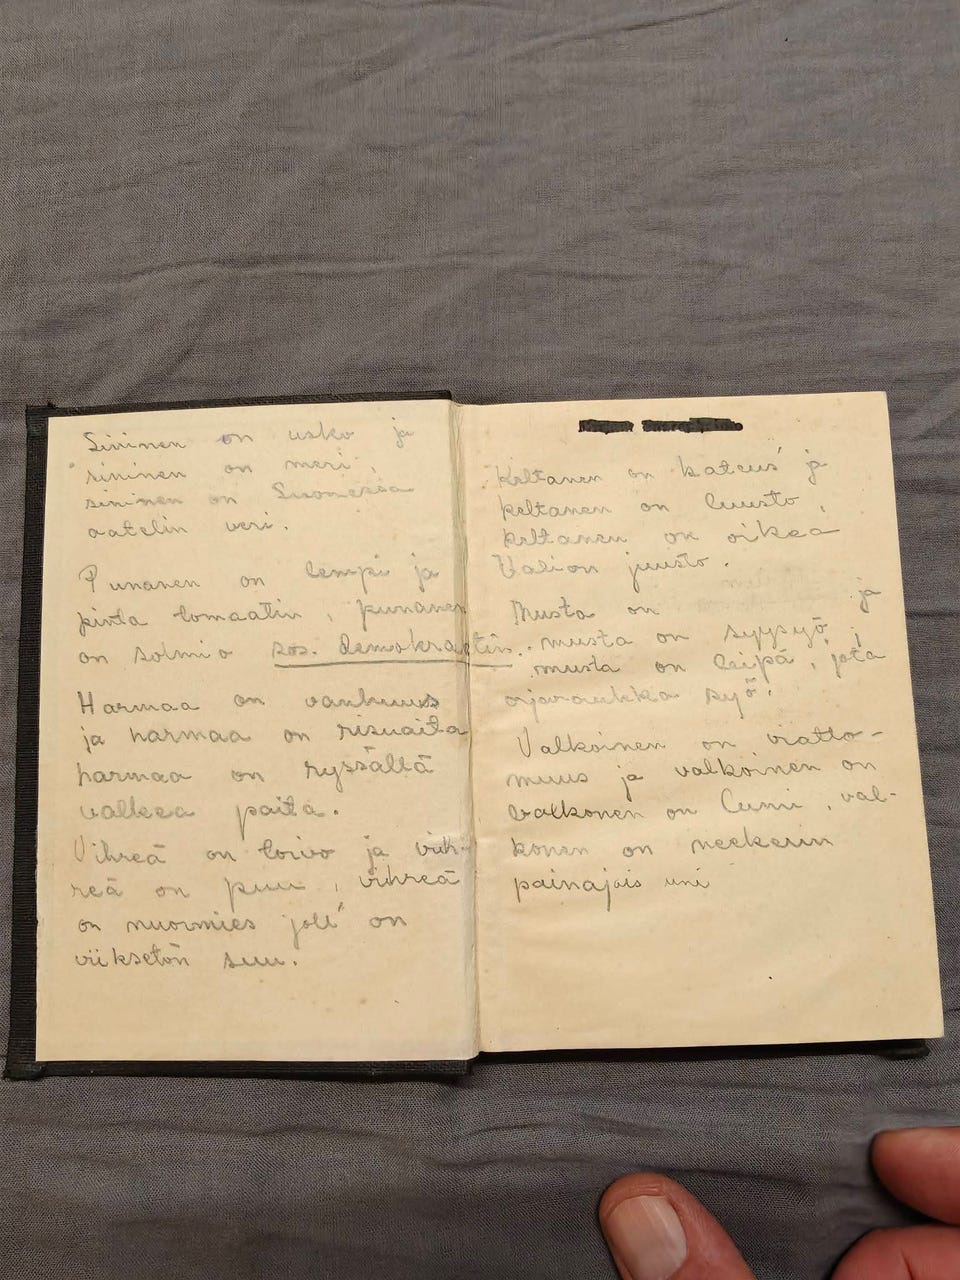 Sininen on usko ja
sininen on meri,
sininen on Suomessa
aatelin veri.
Punanen on lempi ja
pinta tomaatin, punanen
on solmio sos. demokraatin.
Harmaa on vanhuus
ja harmaa on risuaita
harmaa on ryssältä
valkea paita.
Vihreä on toivo ja vih-
reä on puu, vihreä
on nuormies joll' on
viiksetön suu.
Keltanen on kateus ja
keltanen on luusto,
keltanen on oikea
Valion juusto.
Musta on ja
musta on syysyö,
musta on leipä, jota
orjaraukka syö.
Valkoinen on viatto-
muus ja valkoinen on
valkonen on lumi, val-
konen on neekerin
painajais uni